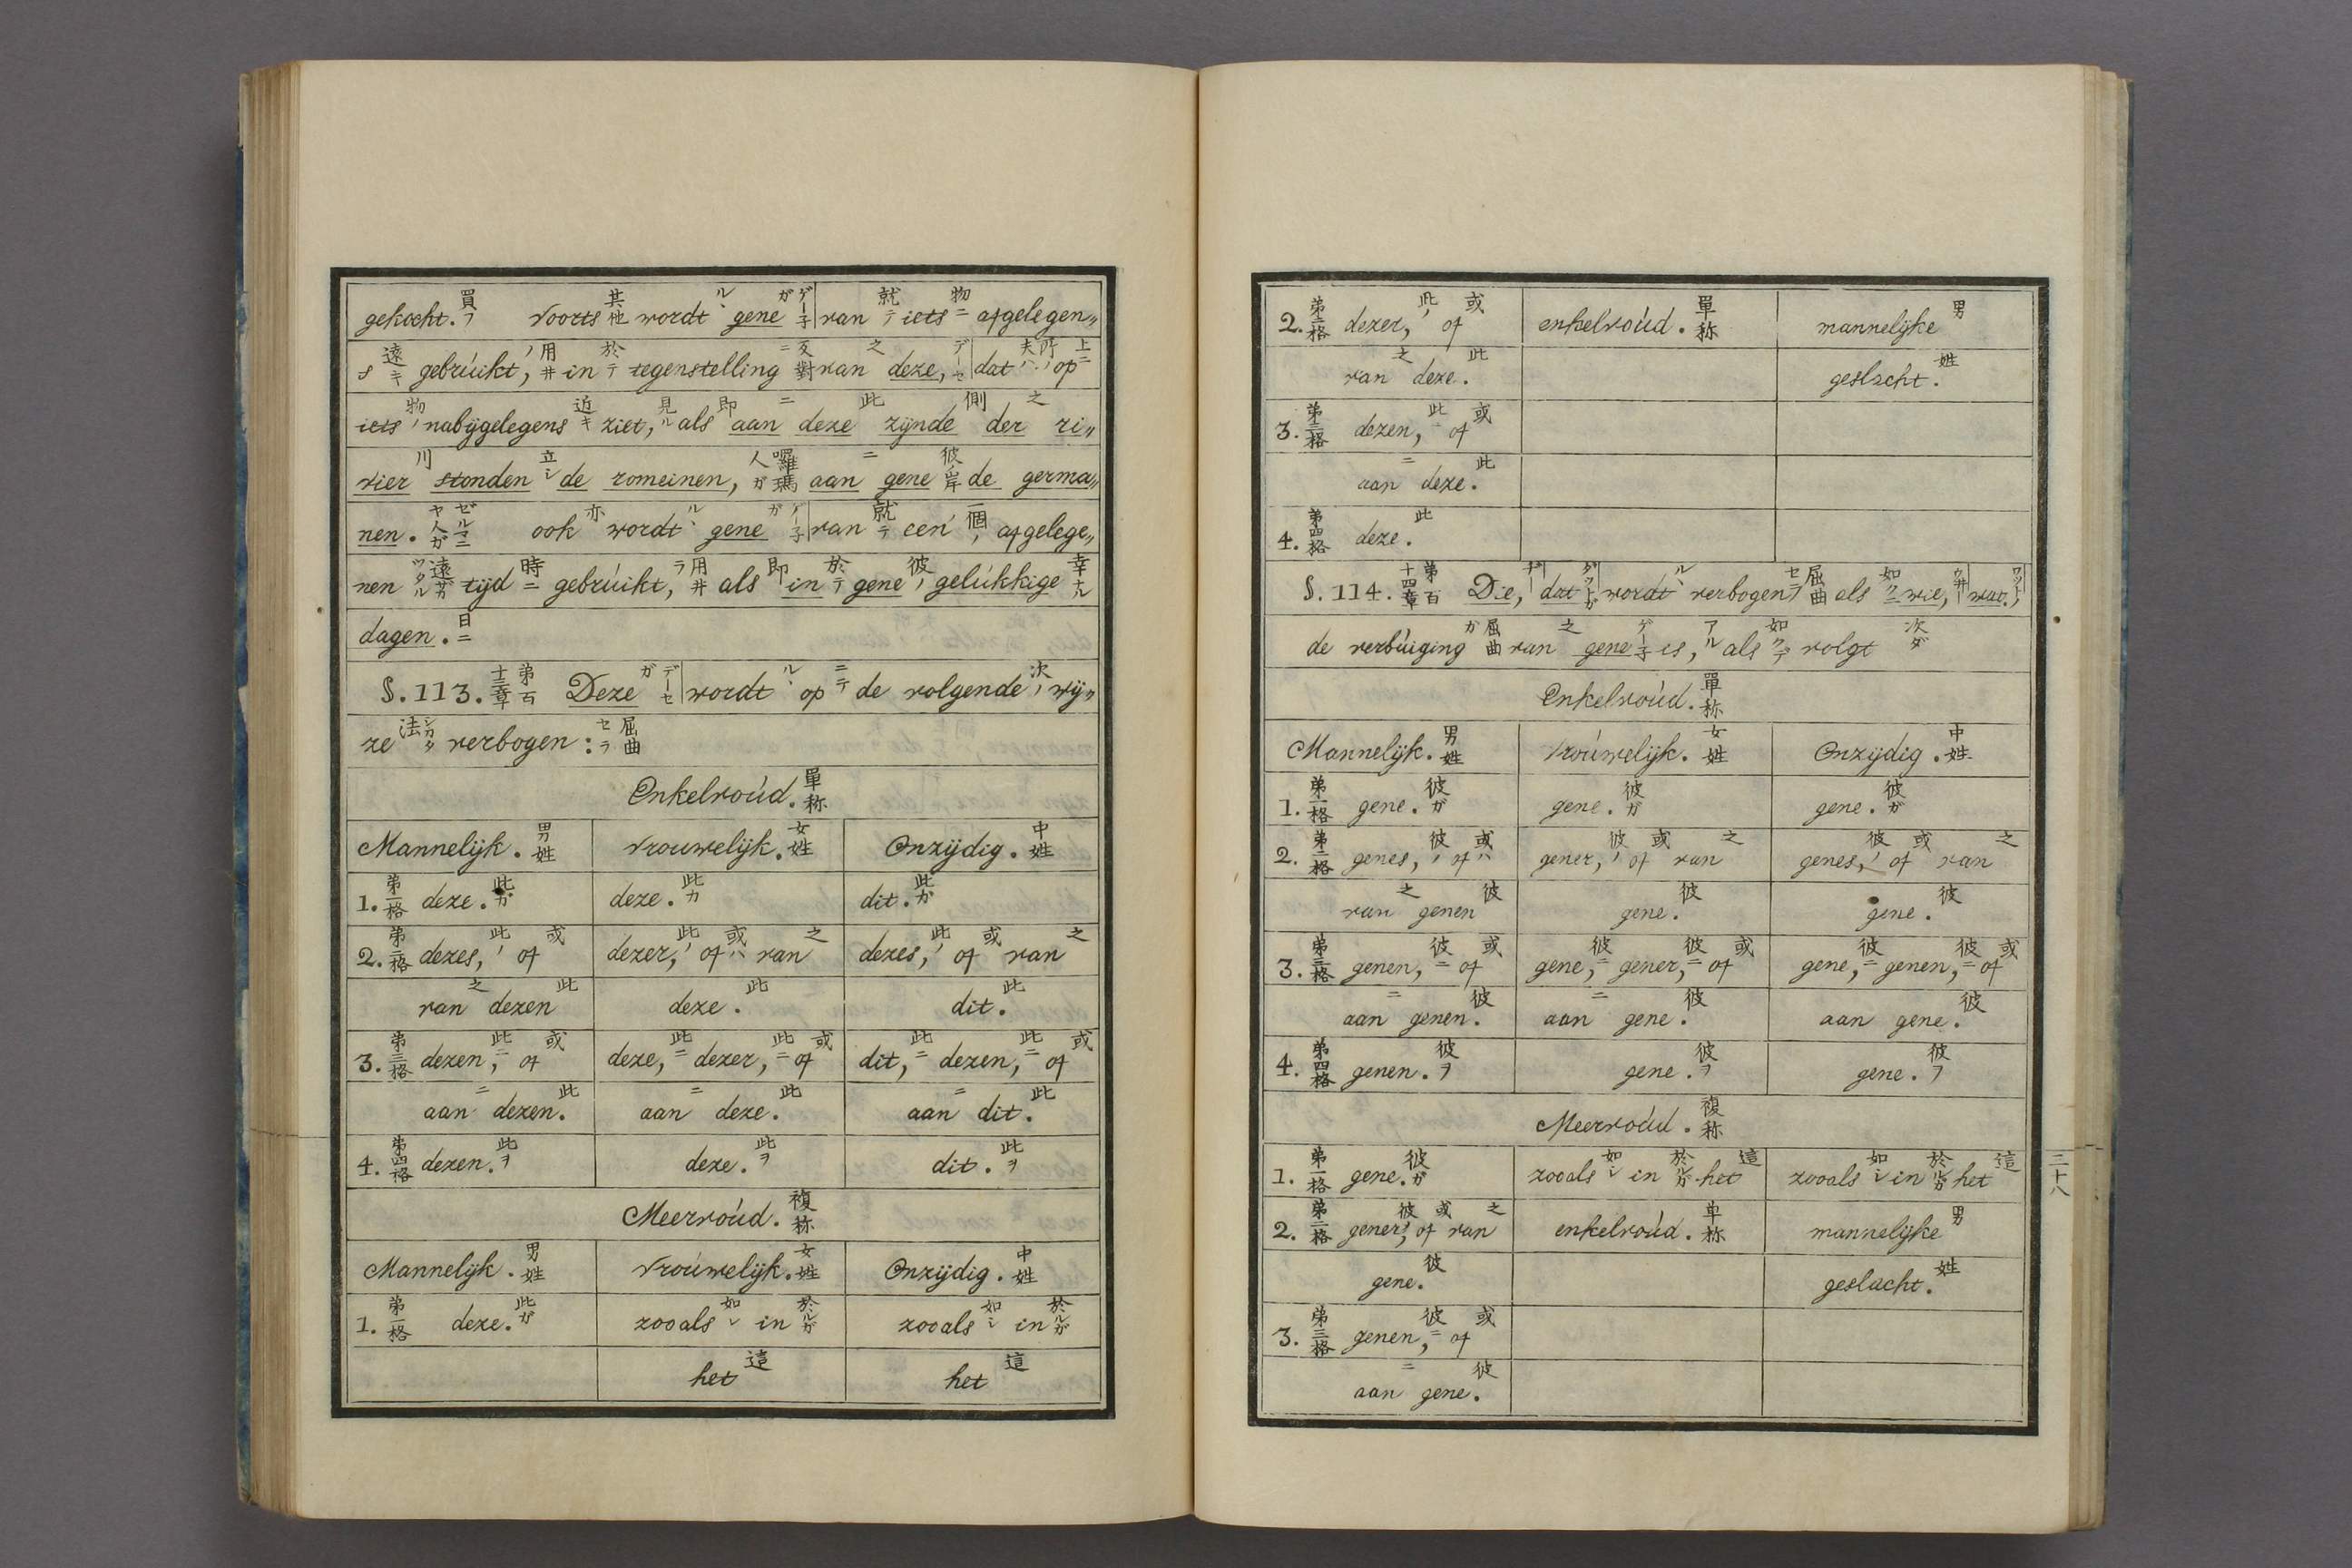 gekocht. 買フ Voorts 其他 wordt ル、 gene ゲー子ガ van 就テ iets 物ニ afgelegen〃
s 遠キ gebrúikt, 用井 in 於テ tegenstelling 反對ニ van 之 deze, デーセ dat 夫ハ op 所上ニ
iets 物 nabijgelegens 近キ ziet, 見ル als 即 aan ニ deze 此 zijnde 側 der 之 ri〃
vier 川 stonden 立シ de romeinen, 囉瑪人ガ aan ニ gene 彼岸 de germa〃
nen. ゼルマニヤ人ガ ook 亦 wordt ル、 gene ゲー子ガ van 就テ een 一個 afgelege〃
nen 遠ザカツタル tijd 時ニ gebrúikt, 用井ラ als 即 in 於テ gene 彼 gelúkkige 幸ナル
dagen. 日ニ
§. 113. 第百十三章 Deze デーセガ wordt ル、 op ニテ de volgende 次 wij〃
ze 法シカタ verbogen: 屈曲セラ
Enkelvoúd. 單称
Mannelijk. 男姓 Vrouwelijk. 女姓 Onzijdig. 中姓
1. 第一格 deze. 此ガ deze. 此カ dit. 此ガ
2. 第二格 dezes, 此 of 或 dezer, 此 of 或ハ van 之 dezes, 此 of 或 van 之
van 之 dezen 此 deze. 此 dit. 此
3. 第三格 dezen, 此ニ of 或 deze, 此ニ dezer, 此ニ of 或 dit, 此ニ dezen, 此ニ of 或
aan ニ dezen. 此 aan ニ deze. 此 aan ニ dit. 此
4. 第四格 dezen. 此ヲ deze. 此ヲ dit. 此ヲ
Meervoúd. 複称
Mannelijk. 男姓 Vroúwelijk. 女姓 Onzijdig. 中姓
1. 第一格 deze. 此ガ zooals 如シ in 於ルガ zooals 如シ in 於ルガ
het 這 het 這
2. 第二格 dezer, 此 of 或 enkelvoúd. 單称 mannelijke 男
van 之 deze. 此 geslacht. 姓
3. 第三格 dezen, 此 of 或
aan ニ deze. 此
4. 第四格 deze. 此
§. 114. 第百十四章 Die, dat wordt ル、 verbogen 屈曲セラ als 如ク wie, wat,
de verbúiging 屈曲ガ van 之 gene ゲー子 is, アル als 如クデ volgt 次ダ
Enkelvoúd. 單称
Mannelijk. 男姓 Vroúwelijk. 女姓 Onzijdig. 中姓
1. 第一格 gene. 彼ガ gene. 彼ガ gene. 彼ガ
2. 第二格 genes, 彼 of 或ハ gener, 彼 of 或 van 之 genes, 彼 of 或 van 之
van 之 genen 彼 gene. 彼 gene. 彼
3. 第三格 genen, 彼ニ of 或 gene, 彼ニ gener, 彼ニ of 或 gene, 彼ニ genen, 彼ニ of 或
aan ニ genen. 彼 aan ニ gene. 彼 aan gene. 彼
4. 第四格 genen. 彼ヲ gene. 彼ヲ gene. 彼ヲ
Meervoúd. 複称
1. 第一格 gene. 彼ガ zooals 如シ in 於ルガ het 這 zooals 如シ in 於ルガ het 這
2. 第二格 gener, 彼 of 或 van 之 enkelvoúd. 单称 mannelijke 男
gene. 彼 geslacht. 姓
3. 第三格 genen, 彼ニ of 或
aan ニ gene. 彼
三十八